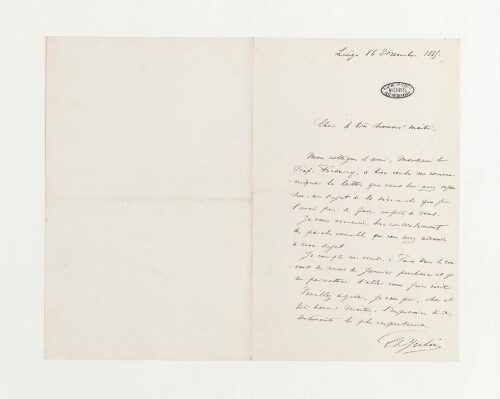 Liège 16 Décembre 1885.
Cher & très honoré maître,
Mon collègue & ami, Monsieur le
Prof. Fredericq, a bien voulu me commu-
niquer la lettre que vous lui avez
au sujet de la demande que je
l'avais prié de faire auprès de vous.
Je vous remercie bien cordialement
de parole aimable que vous avez
à mon sujet.
Je compte me rendre à Paris dans le cou-
rant du mois de Janvier prochain et je
me permettrai d'aller vous faire visite
Veuillez agréer, je vous prie, cher et
très honoré maître, l'expression de mes
sentiments les plus respectueux